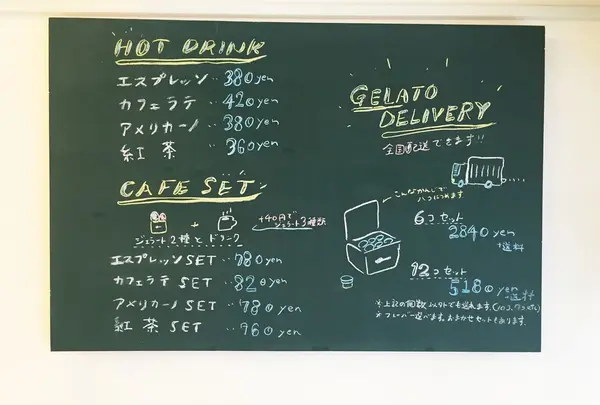 HOT DRINK
エスプレッソ ‥ 380yen
カフェラテ ‥ 420yen
アメリカーノ ‥ 380yen
紅茶 ‥ 360yen
CAFE SET
+
+40円で
ジェラート3種類
ジェラート2種と、ドリンク
エスプレッソSET ‥ 780yen
カフェラテSET ‥ 820yen
アメリカーノSET ‥ 780yen
紅茶SET ‥ 960yen
GELATO
DELIVERY
全国配送できます!!
こんなかんじで
ハコにつめます
6コセット
2840yen
+送料
12コセット
5180yen
+送料
※上記の個数以外でも送れます。
※フレーバー選べます。おまかせセットもあります。